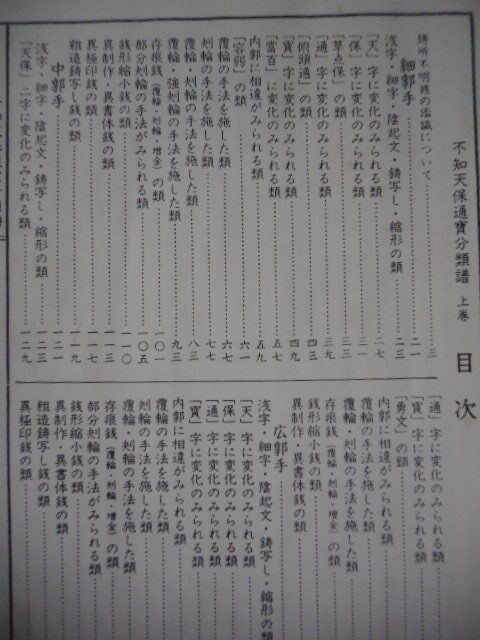 不知天保通寶分類譜 上巻
目次
鋳所不明銭の鑑識について……三
細郭手……二一
浅字・細字・陰起文・鋳写し・縮形の類……二三
「天」字に変化のみられる類……二七
「保」字に変化のみられる類……三一
「草点保」の類……三三
「通」字に変化のみられる類……三九
「俯頭通」の類……四三
「寶」字に変化のみられる類……四九
「當百」に変化のみられる類……五七
内郭に相違がみられる類……五九
「容弱」の類……六一
覆輪の手法を施した類……六七
刔輪の手法を施した類……七七
覆輪・刔輪の手法を施した類……八三
覆輪・強刔輪の手法を施した類……九三
存痕銭(覆輪・刔輪・増金)の類……一〇一
部分刔輪の手法がみられる類……一〇五
銭形縮小銭の類……一一〇
異制作・異書体銭の類……一一三
異極印銭の類……一一七
粗造鋳写し銭の類……一一九
中郭手……一二一
浅字・細字・陰起文・鋳写し・縮形の類……一二三
「天保」二字に変化のみられる類……一二九
「通」字に変化のみられる類
「寶」字に変化のみられる類
「勇文」の類
内郭に相違がみられる類
覆輪の手法を施した類
覆輪・刔輪の手法を施した類
存痕銭(覆輪・刔輪・増金)の類
銭形縮小銭の類
異制作・異書体銭の類
広郭手
浅字・細字・陰起文・鋳写し・縮形の類
「天」字に変化のみられる類
「保」字に変化のみられる類
「通」字に変化のみられる類
「寶」字に変化のみられる類
内郭に相違がみられる類
覆輪の手法を施した類
刔輪の手法を施した類
覆輪・刔輪の手法を施した類
存痕銭(覆輪・刔輪・増金)の類
部分刔輪の手法がみられる類
銭形縮小銭の類
異制作・異書体銭の類
粗造鋳写し銭の類
異極印銭の類